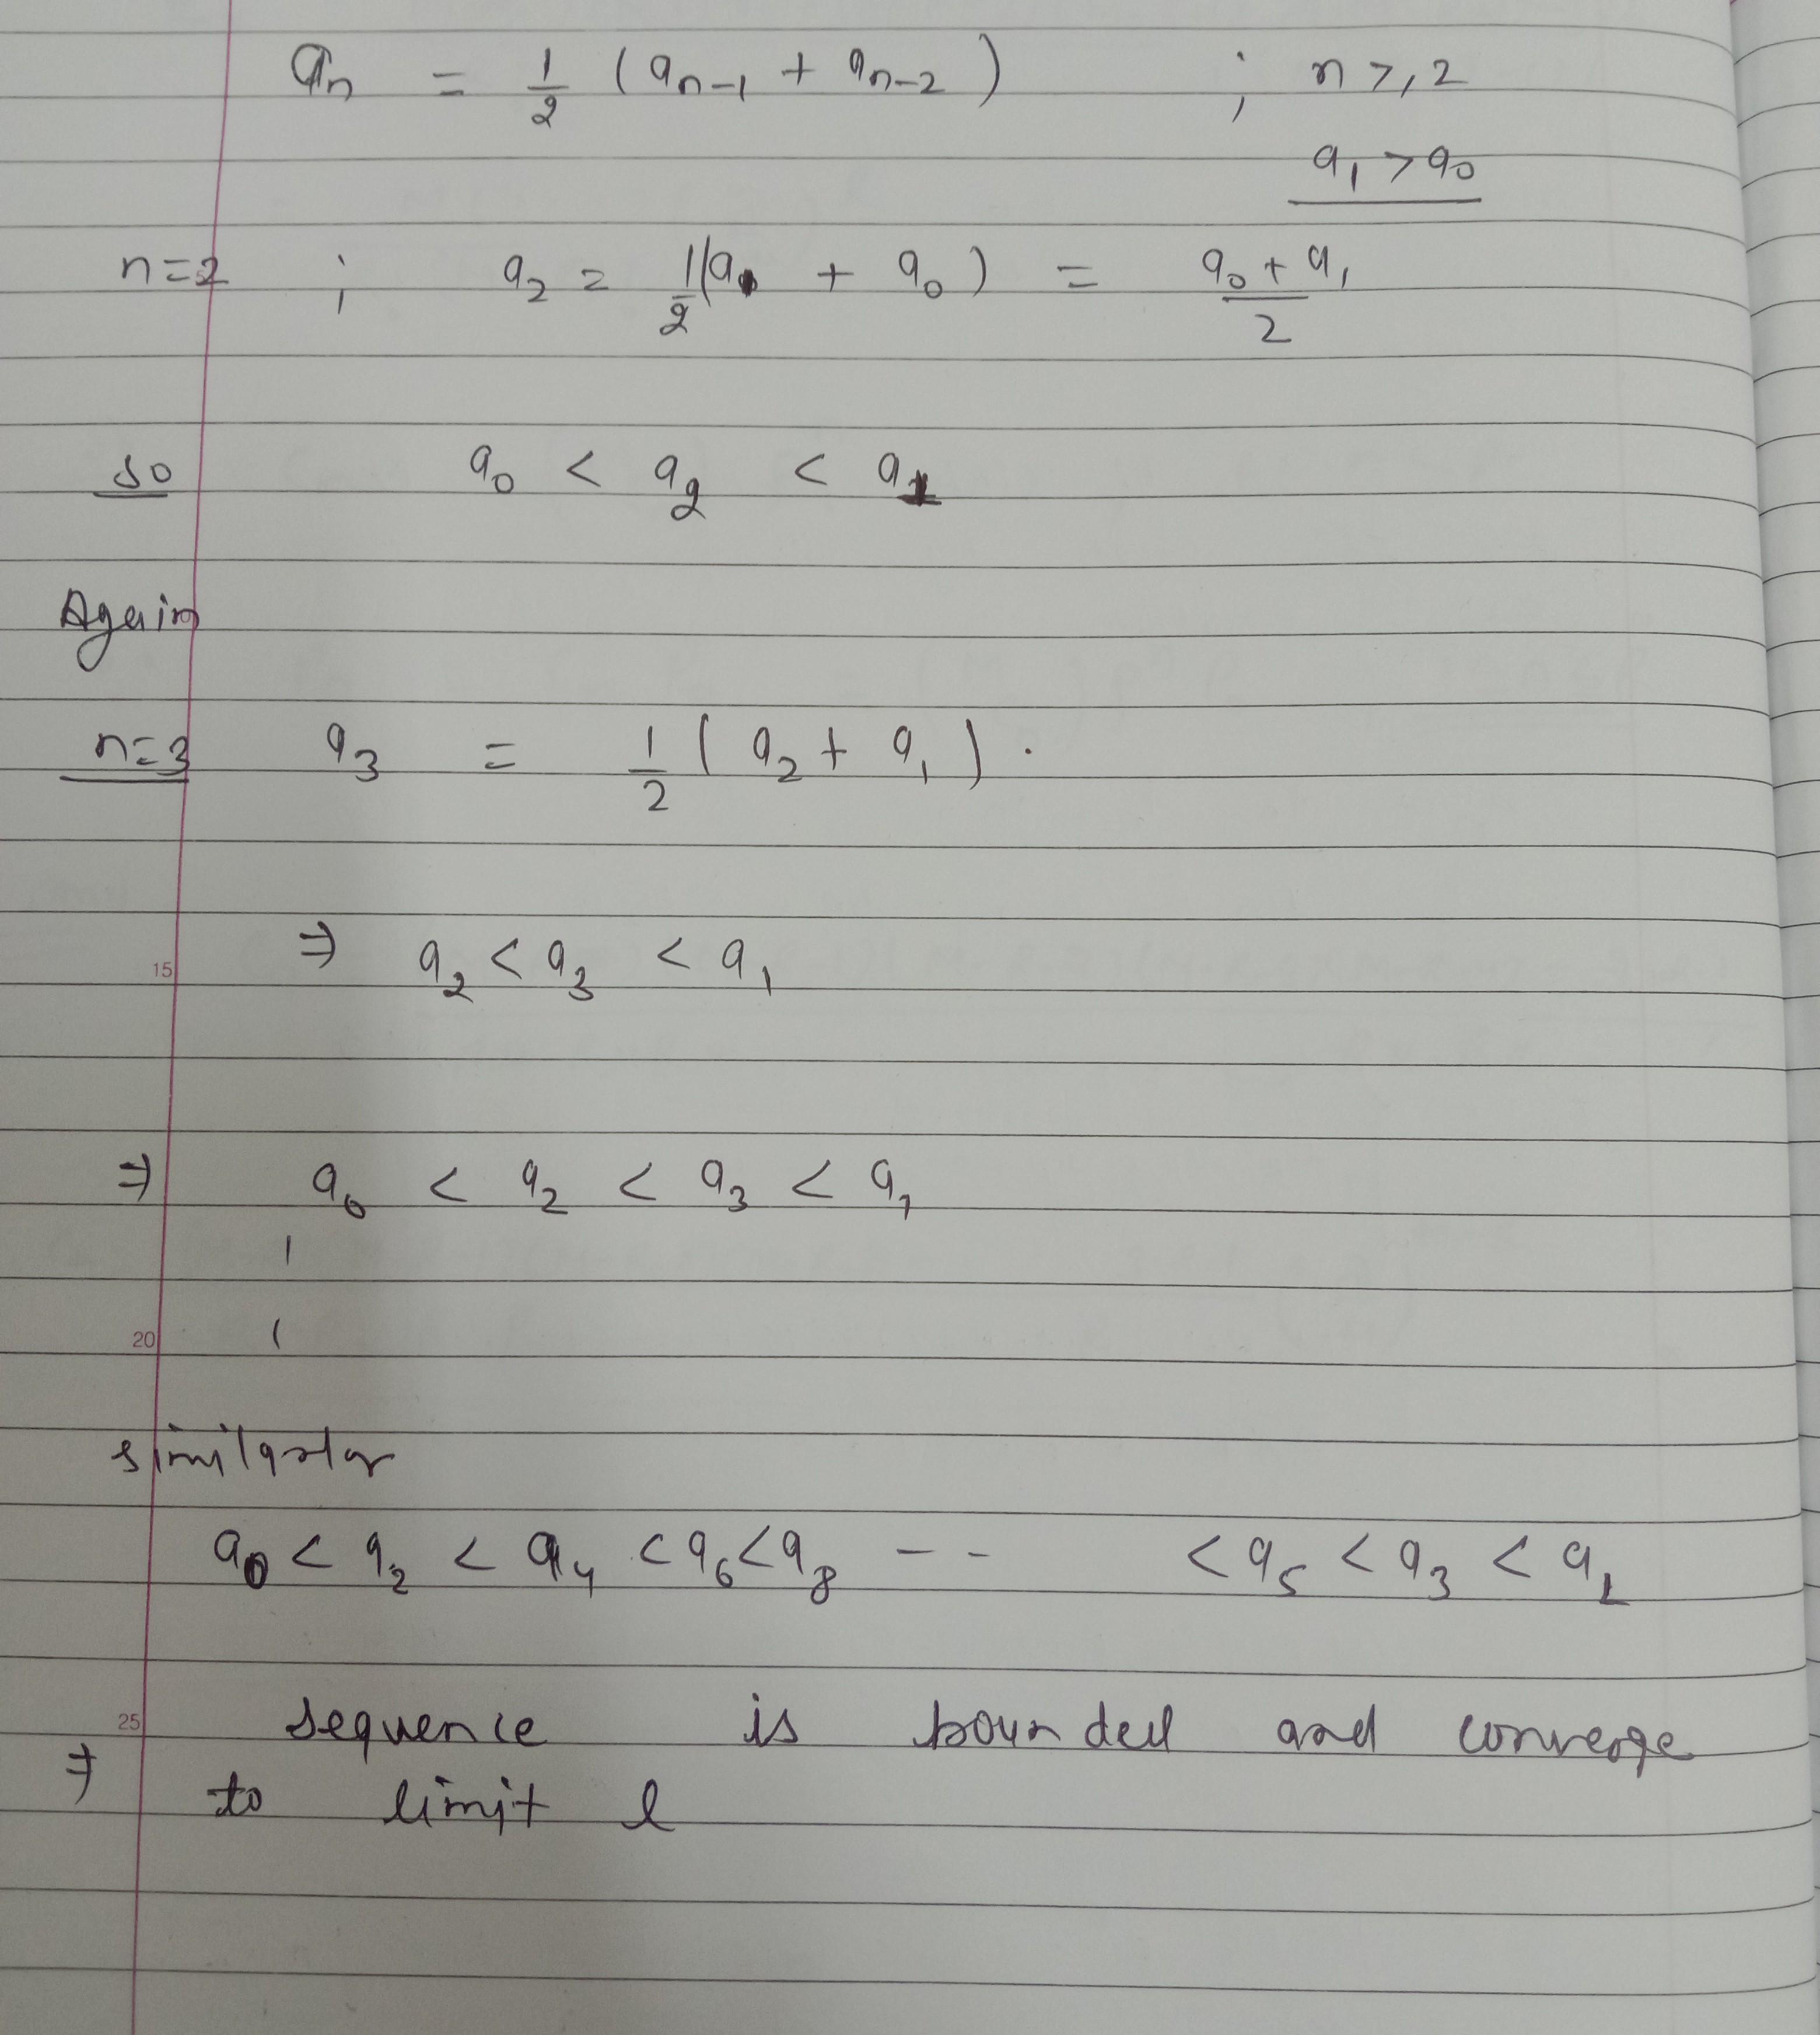 aₙ = 1/2 (aₙ₋₁ + aₙ₋₂) ; n ≥ 2
a₁ > a₀
n=2 ; a₂ = 1/2 (a₁ + a₀) = (a₀ + a₁)/2
so a₀ < a₂ < a₁
Again
n=3 a₃ = 1/2 (a₂ + a₁) .
15
⇒ a₂ < a₃ < a₁
⇒ a₀ < a₂ < a₃ < a₁
20
a₀ < a₂ < a₄ < a₆ < a₈ - - < a₅ < a₃ < a₁
25
⇒ sequence is bounded and converge
to limit l